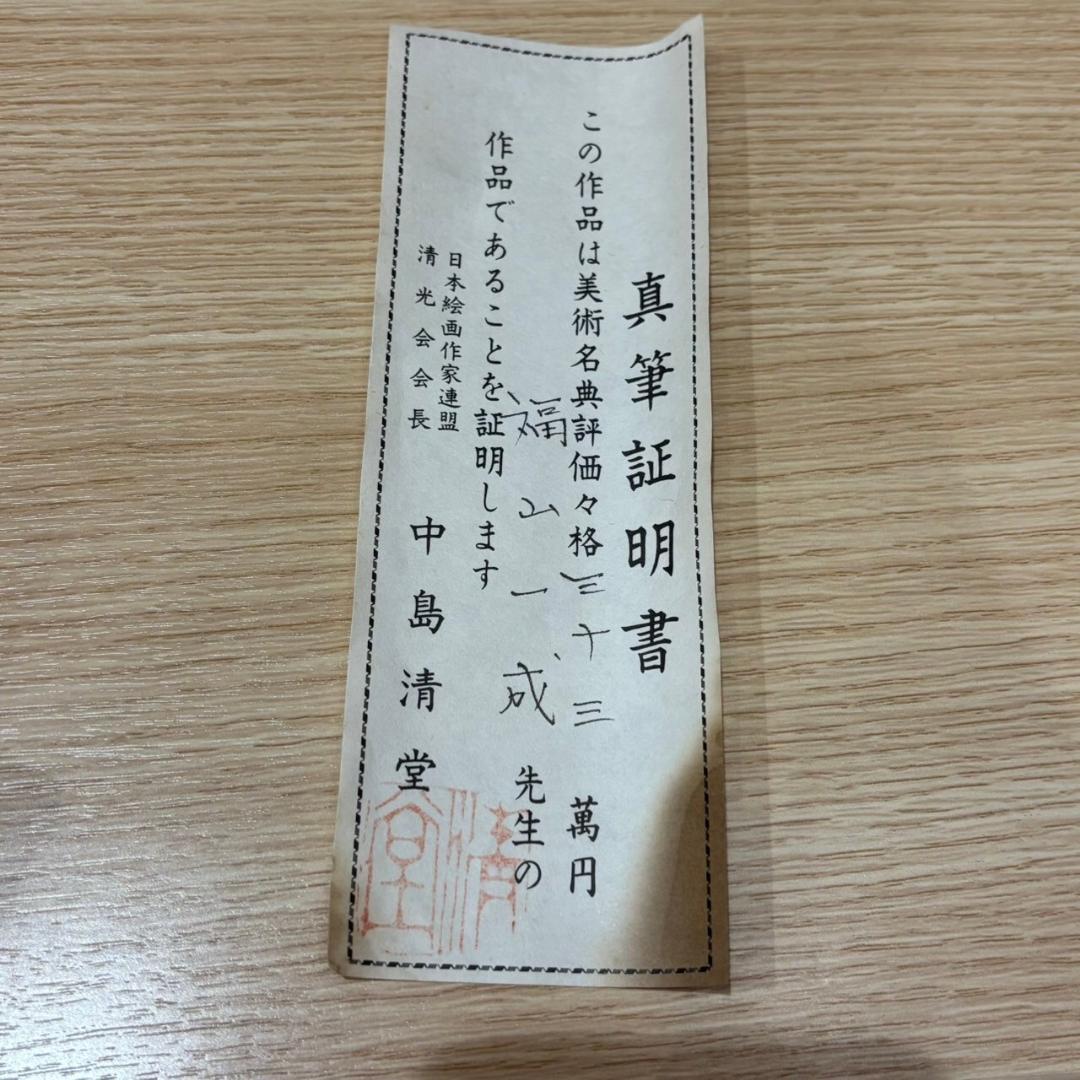 真筆証明書
この作品は美術名典評価々格三十三萬円
福山一成先生の
作品であることを証明します
日本絵画作家連盟
清光会会長
中島清堂
清堂